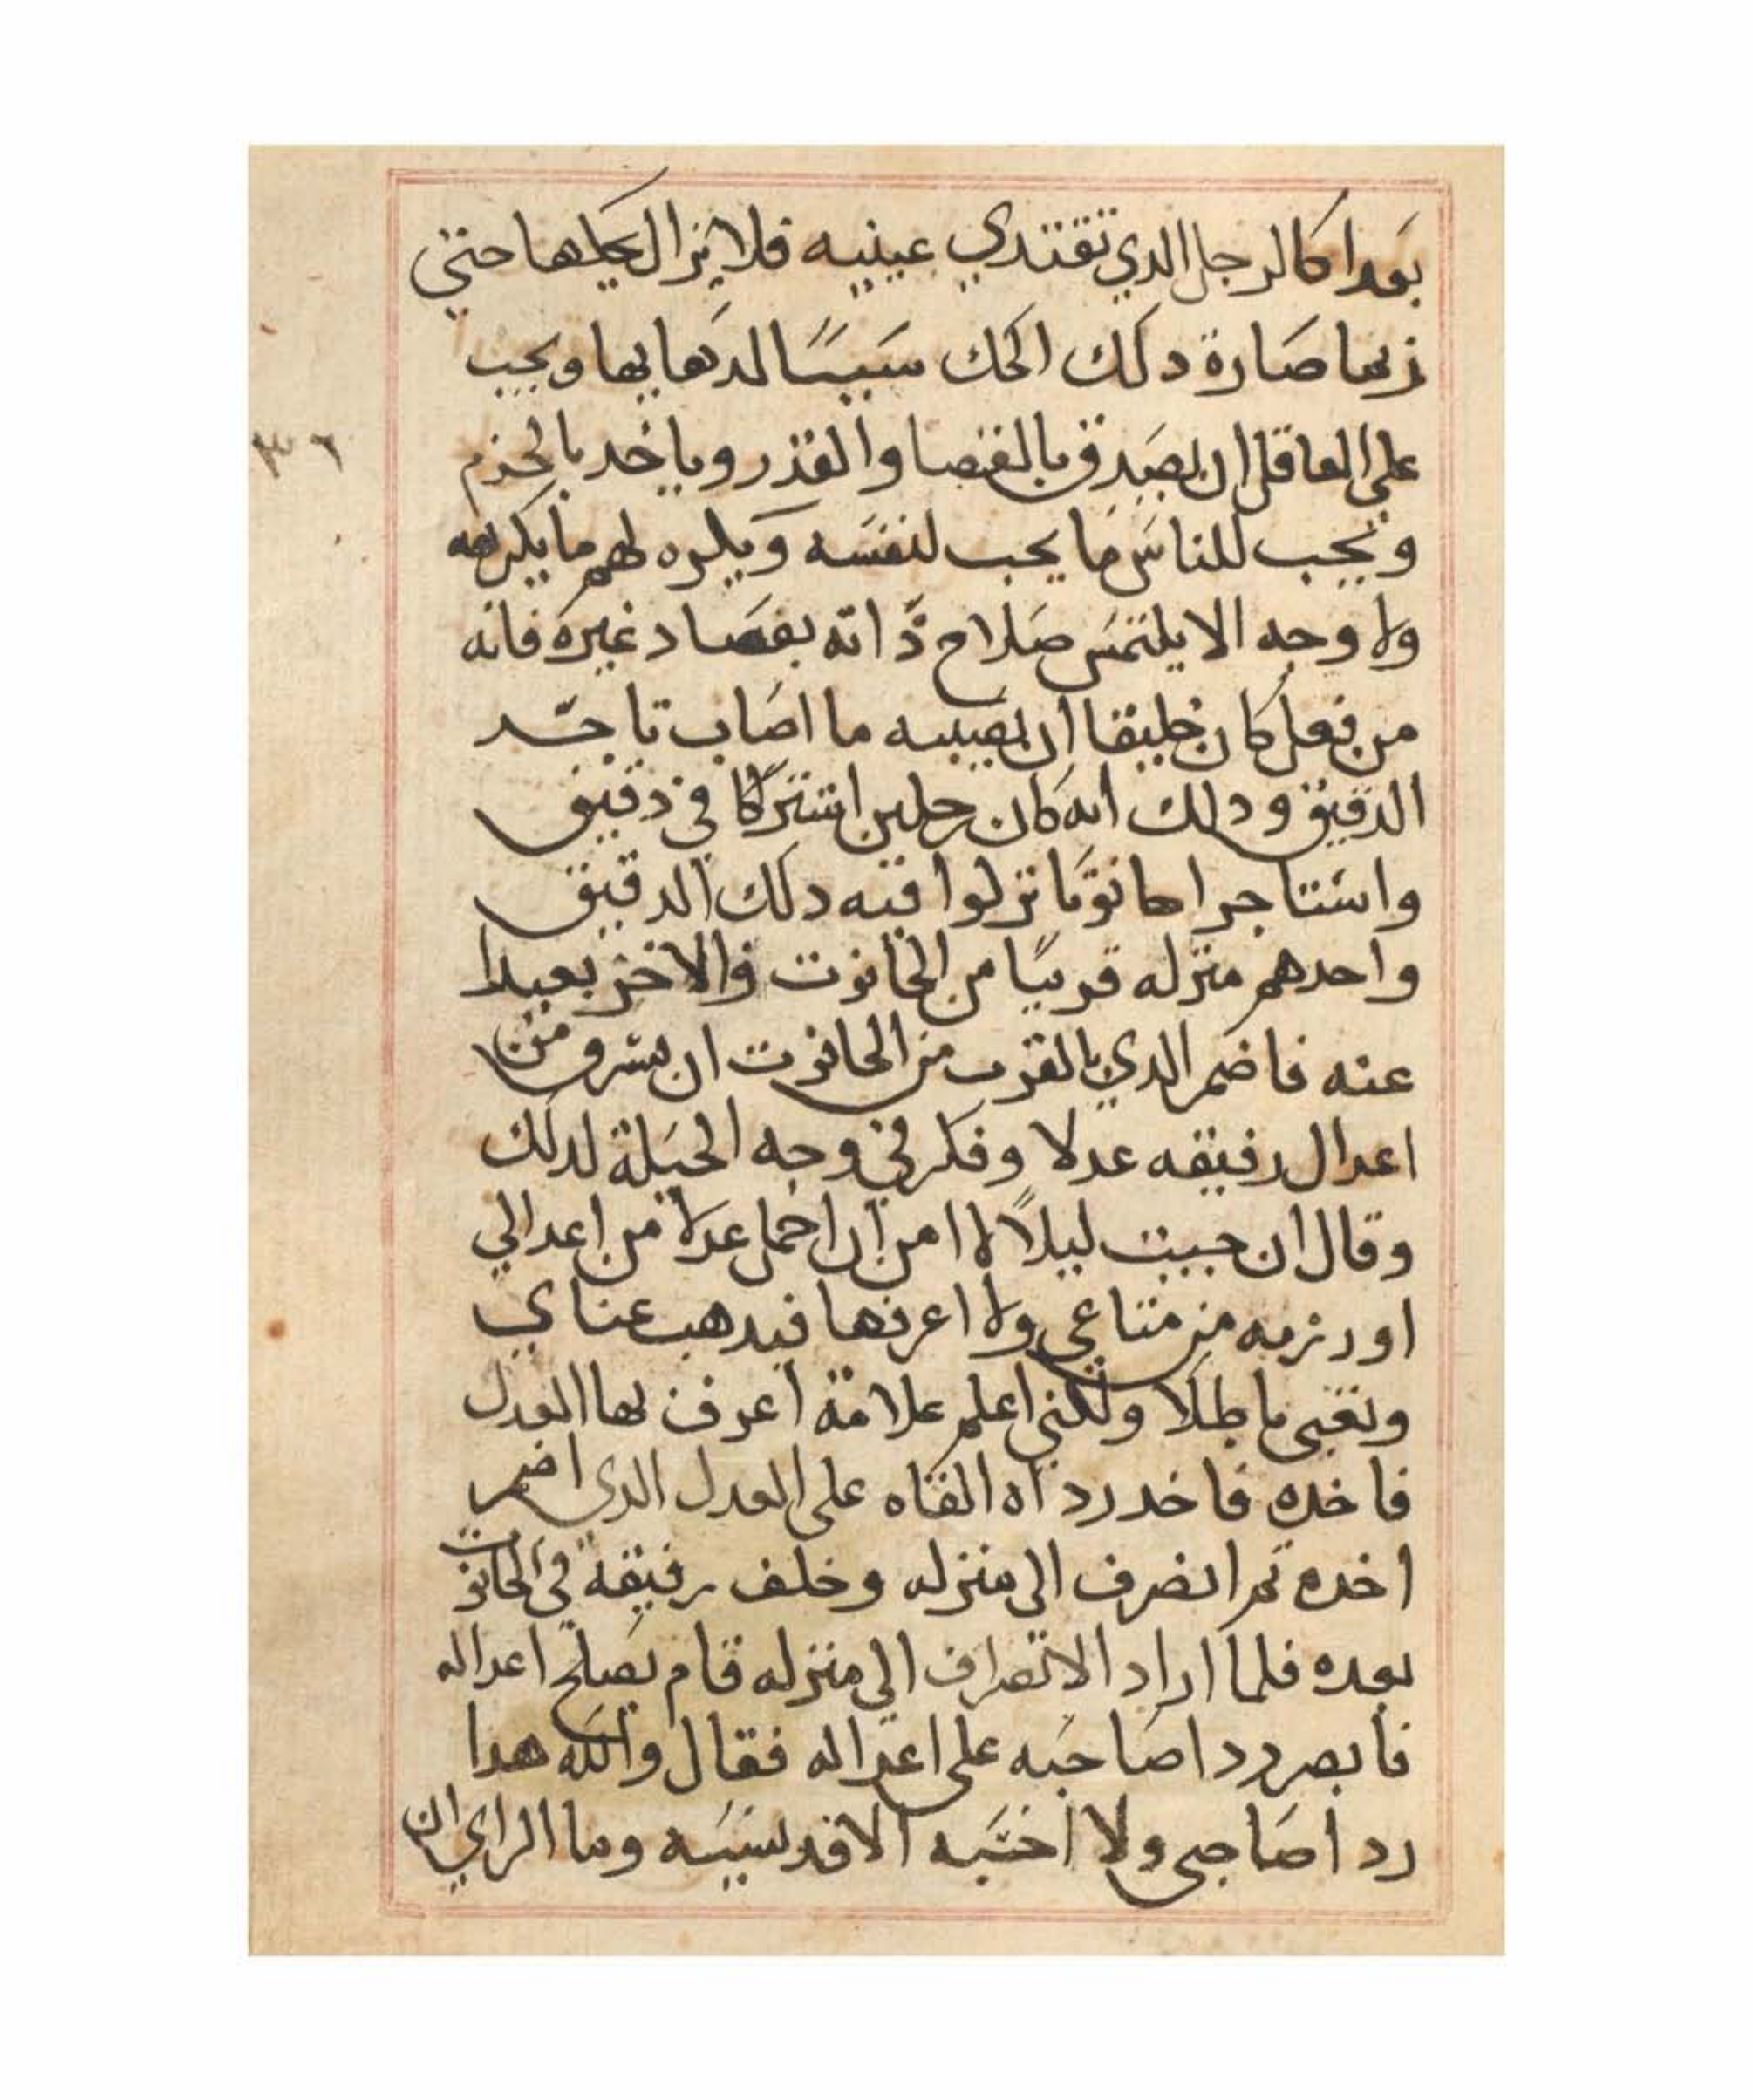 بعدا كالرجل الدي تقتدي عينيه فلا يزال يحكها حتي
ربما صارة دلك الحك سببًا لدهابها ويجب
علي العاقل ان يصدق بالقضا والقدر وياخد بالحزم
ويحب للناس ما يحب لنفسه ويكره لهم ما يكرهه
ولا وجه الا يلتمس صلاح ذاته بفساد غيره فانه
من فعل كان خليقا ان يصيبه ما اصاب تاجر
الدقيق ودلك انه كان رجلين اشتركا في دقيق
واستاجرا حانوتا نزلوا فيه دلك الدقيق
واحدهم منزله قريبًا من الحانوت والاخر بعيدا
عنه فاضمر الدي بالقرب من الحانوت ان يسرق من
اعدال رفيقه عدلا وفكر في وجه الحيلة لدلك
وقال ان جيت ليلاً لا امن ان احمل عدلا من اعدالي
او رزمه من متاعي ولا اعرفها فيدهب عناي
وتعبي باطلا ولكني اعلم علامة اعرف بها العدل
فاخده فاخد رداه القاه علي العدل الدي اضمر
اخده ثم انصرف الي منزله وخلف رفيقه في الحانوت
بعده فلما اراد الانصراف الي منزله قام يصلح اعداله
فابصر ردا صاحبه علي اعداله فقال والله هدا
ردا صاحبي ولا احسبه الا قد نسيه وما الراي ان
٣٦